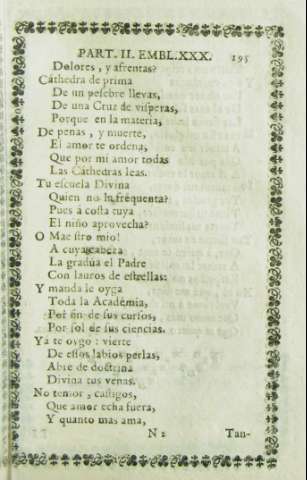 PART. II. EMBL. XXX. 195
Dolores, y afrentas?
Cáthedra de prima
De un pesebre llevas,
De una Cruz de visperas,
Porque en la materia,
De penas, y muerte,
El amor te ordena,
Que por mi amor todas
Las Cáthedras leas.
Tu escuela Divina
Quien no la frequenta?
Pues á costa tuya
El niño aprovecha?
O Maestro mio!
A cuya cabeza
La gradúa el Padre
Con lauros de estrellas:
Y manda le oyga
Toda la Academia,
Por fin de sus cursos,
Por sol de sus ciencias.
Ya te oygo: vierte
De essos labios perlas,
Abre de doctrina
Divina tus venas.
No temor, castigos,
Que amor echa fuera,
Y quanto mas ama,
N 2 Tan-